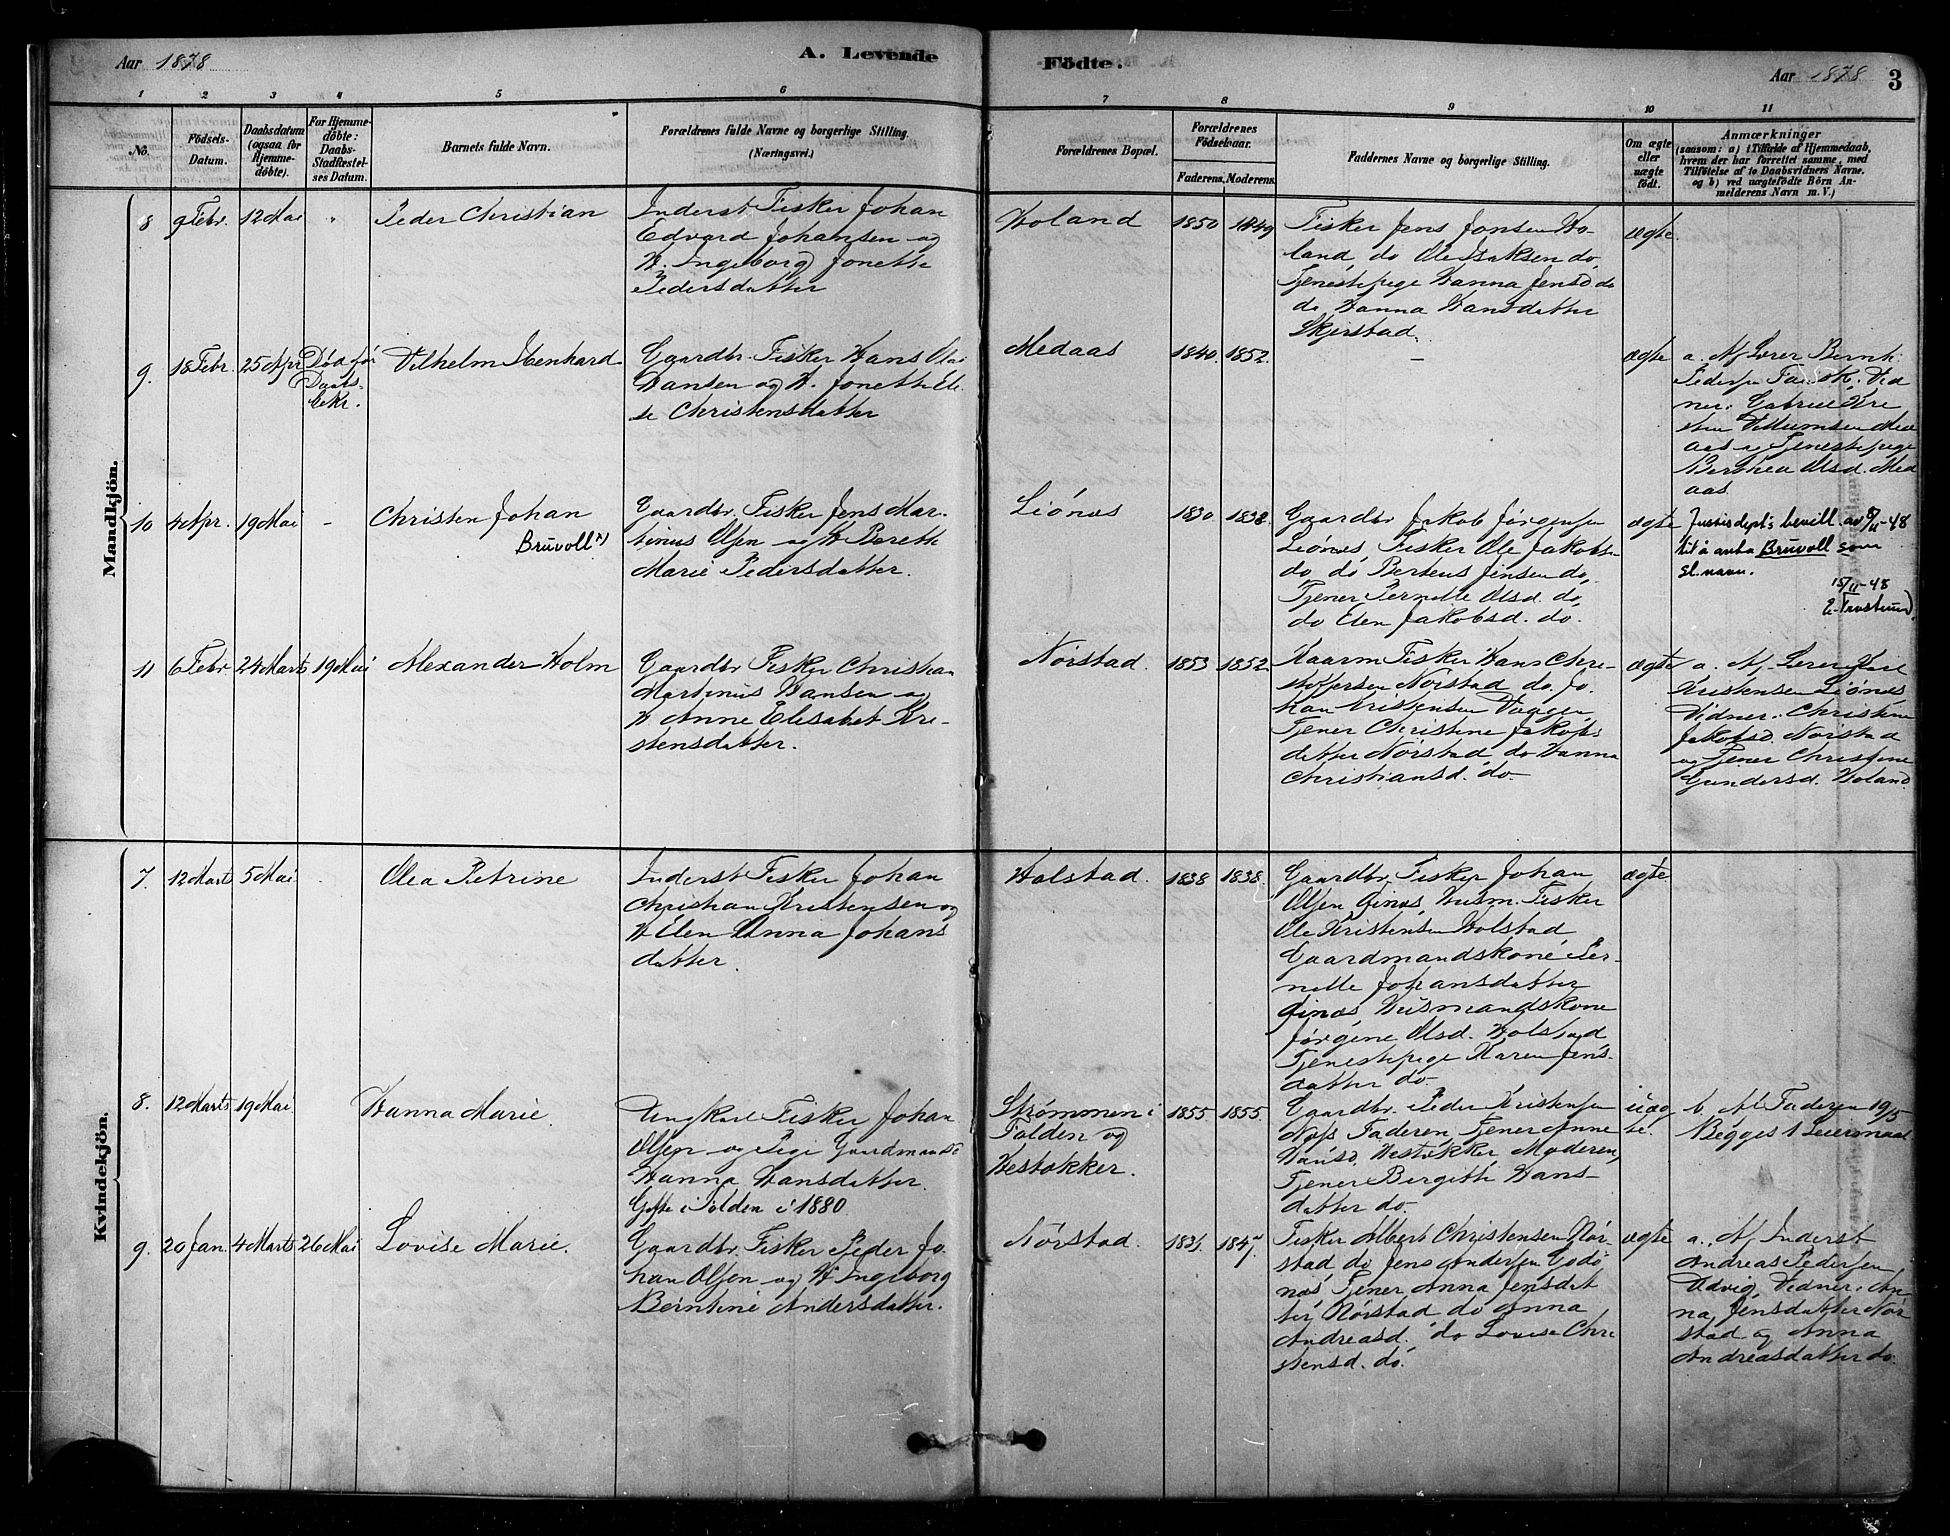 Aar 1878
A. Levende
Födte.
Aar 1878
3
1
2
3
4
5
6
7
8
9
10
11
No.
Födsels-
Datum.
Daabsdatum
(ogsaa for
Hjemme-
döbte).
For Hjemme-
döbte:
Daabs-
Stadfæstel-
ses Datum.
Barnets fulde Navn.
Forældrenes fulde Navne og borgerlige Stilling.
(Næringsvei.)
Forældrenes Bopæl.
Forældrenes
Födselsaar.
Faderens. Moderens.
Faddernes Navne og borgerlige Stilling.
Om ægte
eller
uægte
födt.
Anmærkninger
(saasom: a) i Tilfælde af Hjemmedaab,
hvem der har forrettet samme, med
Tilföielse af to Daabsvidners Navne,
og b) ved uægtefödte Börn An-
melderens Navn m. V.)
Mandkjön.
8
9 Febr.
12 Mai
"
Peder Christian
Inderst Fisker Johan
Edvard Johansen og
H. Ingeborg Jonette
Pedersdatter
Holand
1850
1849
Fisker Jens Jonsen Ho-
land do Ole Isaksen do,
Tjenestepige Hanna Jensd do
do Hanna Hansdatter
Skjerstad.
ægte.
9.
18 Febr.
25 Apr
Død før
Daabs-
bekr.
Vilhelm Ibenhard
Gaardbr. Fisker Hans Olai
Hansen og H. Jonette El-
se Christensdatter
Medaas
1840.
1852.
–
ægte
a. Af Lærer Bernt
Pedersen Vid
ner: Gabriel Kri
sten Villumsen Med
aas og Tjenestepige
Berthea Olsd. Med
aas.
10
4 Apr.
19 Mai
–
Christen Johan
Bruvoll
Gaardbr. Fisker Jens Mar-
tinus Olsen og H Bereth
Marie Pedersdatter.
Liönes
1830
1838.
Gaardbr Jakob Jørgensen
Liönes, Fisker Ole Jakobs-
do do Berteus Jensen do,
Tjener Pernelle Olsd. do,
do Elen Jakobsd. do.
ægte
Justisdept's bevill. av 8/11-48
til å anta Bruvoll som
sl.navn.
15/11-48
11
6 Febr.
24 Marts
19 Mai
Alexander Holm
Gaardbr Fisker Christian
Martinus Hansen og
H Anne Elisabet Kri-
stensdatter.
Nörstad.
1853
1852
Kaarm Fisker Hans Chri-
stoffersen Nörstad do. Jo-
han Kristensen Vaagen
Tjener Christine Jakobs
datter Nörstad do Hanna
Christiansd. do
ægte
a. Af Lærer
Kristensen Liönes
Vidner: Christine
Jakobsd. Nörstad
og Tjener Christine
Gundersd. Holand
Kvindekjön.
7.
12 Marts
5 Mai
Olea Petrine
Inderst Fisker Johan
Christian Kristensen og
H Elen Anna Johans
datter.
Holstad.
1838
1838.
Gaardbr. Fisker Johan
Olsen Ginøs, Husm. Fisker
Ole Kristensen Holstad
Gaardmandskone Per-
nelle Johansdatter
Ginøs, Husmandskone
Jørgine Olsd. Holstad
Tjenestepige Karen Jens-
datter do
ægte.
8.
12 Marts
19 Mai
Hanna Marie
Ungkarl Fisker Johan
Olsen og Pige Gaardmands
Hanna Hansdatter.
Gifte i Folden i 1880
Strømmen i
Folden og
Vestokker.
1855
1855.
Gaardbr. Peder Kristensen
Næss Faderen Tjener Anne
Hansd. Vestokker Moderen,
Tjener Birgitte Hans-
datter do.
uæg-
te.
b. Af Faderen 19/5
Begges 1 Leiermaal
9.
20 Jan.
4 Marts
26 Mai
Lovise Marie.
Gaardbr. Fisker Peder Jo-
han Olsen og H Ingeborg
Berntine Andersdatter.
Nörstad.
1847
Fisker Albert Christensen Nör-
stad do Jens Andersen Godö
næs, Tjener Anna Jensdat
ter Nörstad do Anna
Andreasd. do Lovise Chri
stensd. do.
ægte
a. Af Inderst
Andreas Pedersen
Udvig, Vidner: An-
na Jensdatter Nör
stad og Anna
Andreasdatter do